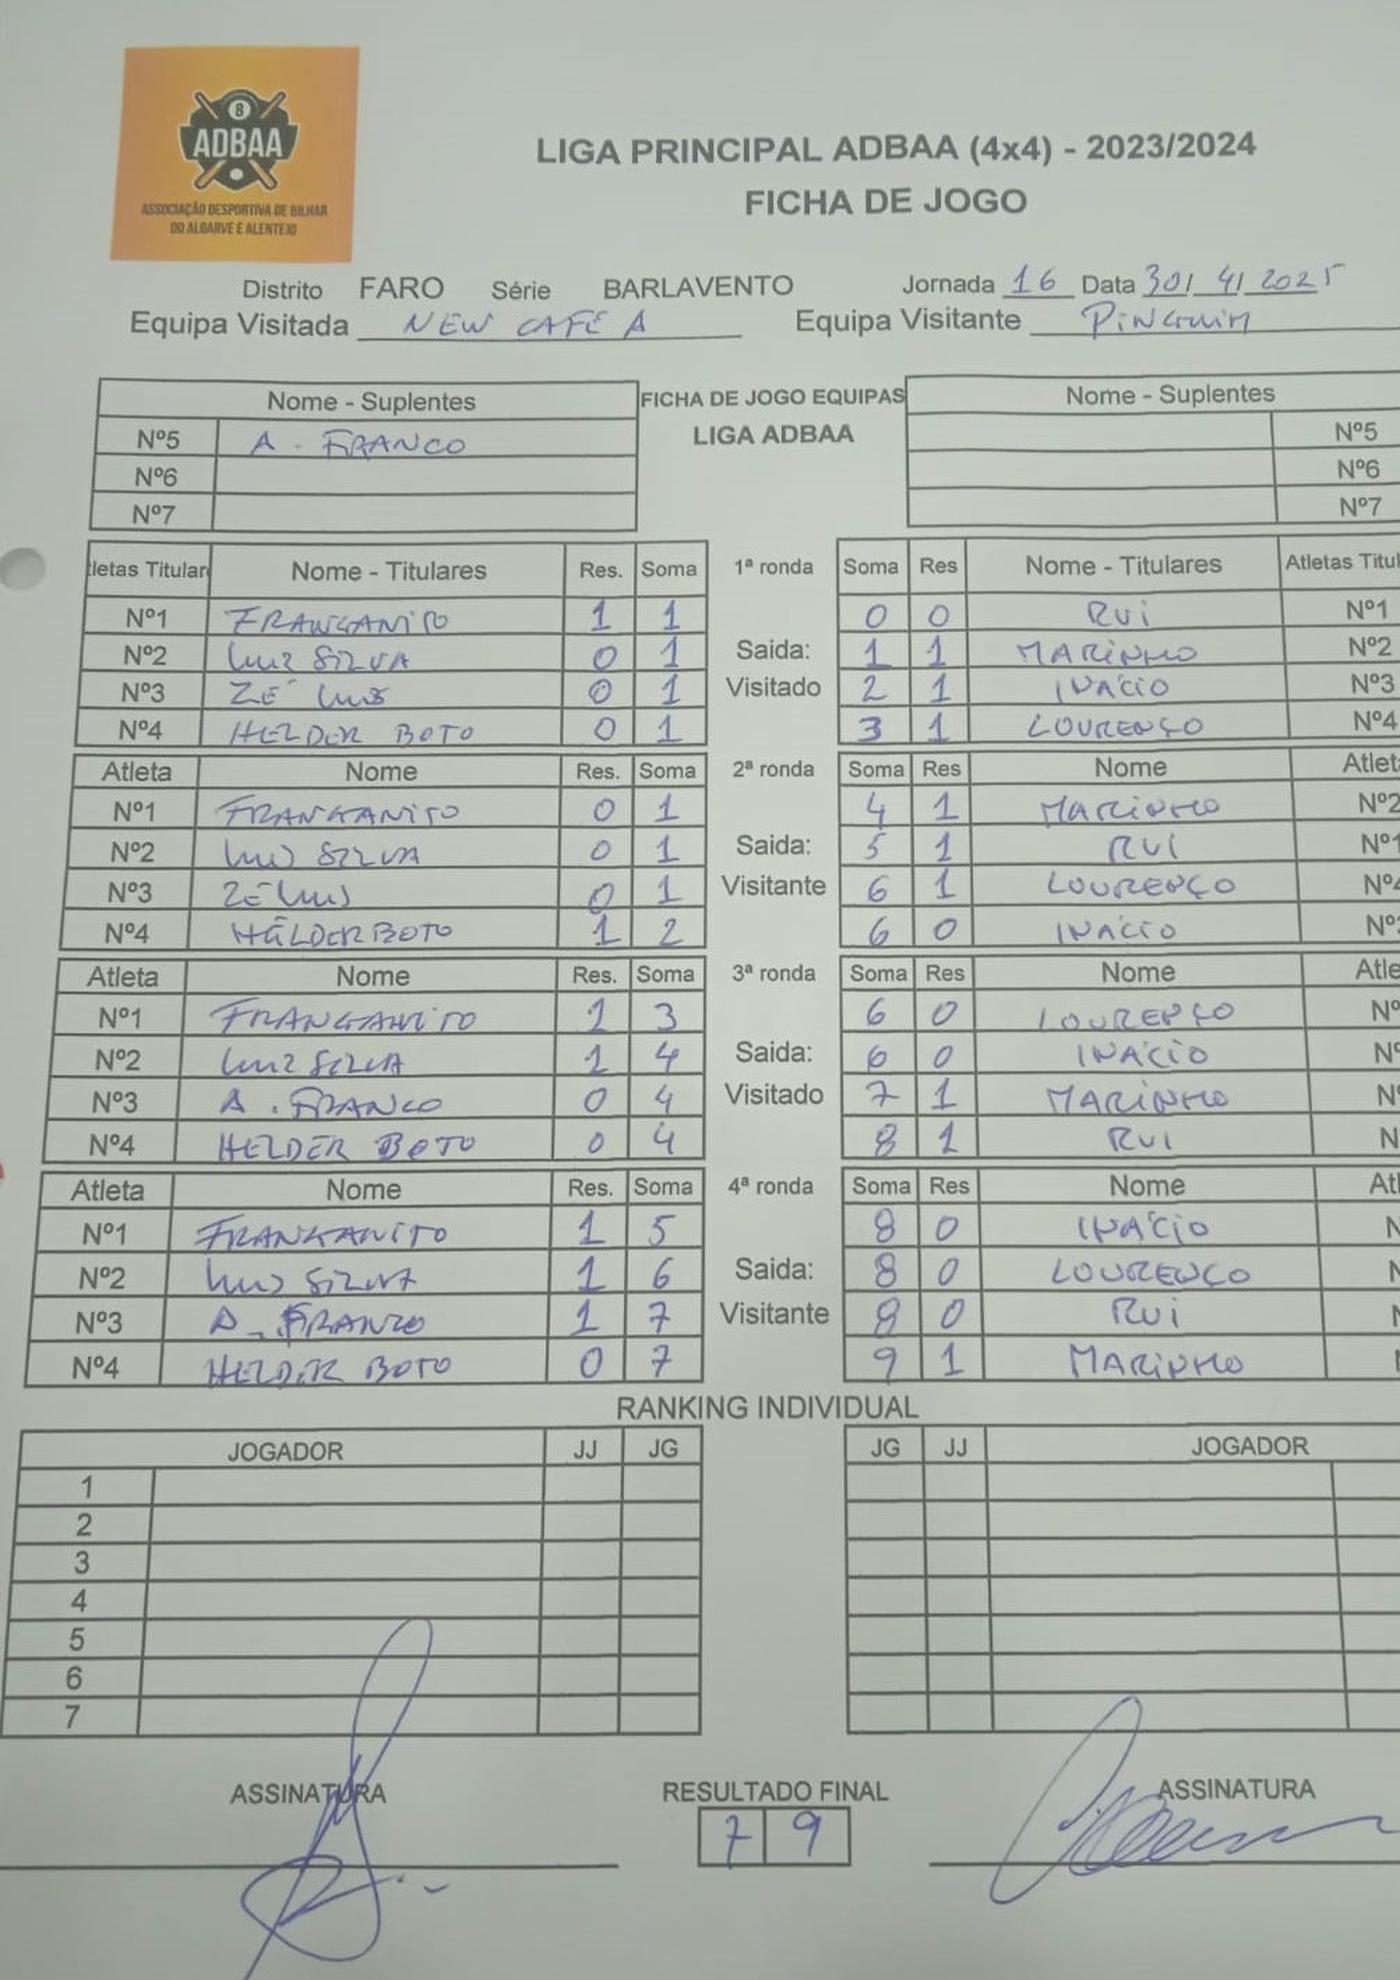 8
ADBAA
ASSOCIAÇÃO DESPORTIVA DE BILHAR
DO ALGARVE E ALENTEJO
LIGA PRINCIPAL ADBAA (4x4) - 2023/2024
FICHA DE JOGO
Distrito FARO Série BARLAVENTO Jornada 16 Data 30/4/2025
Equipa Visitada NEW CAFÉ A Equipa Visitante PINGUIM
Nome - Suplentes FICHA DE JOGO EQUIPAS Nome - Suplentes
Nº5 A. FRANCO LIGA ADBAA Nº5
Nº6 Nº6
Nº7 Nº7
letas Titular Nome - Titulares Res. Soma 1ª ronda Soma Res Nome - Titulares Atletas Titul
Nº1 FRANGANITO 1 1 0 0 RUI Nº1
Nº2 LUIS SILVA 0 1 Saida: 1 1 MARINHO Nº2
Nº3 ZÉ LUIS 0 1 Visitado 2 1 INÁCIO Nº3
Nº4 HELDER BOTO 0 1 3 1 LOURENÇO Nº4
Atleta Nome Res. Soma 2ª ronda Soma Res Nome Atlet
Nº1 FRANGANITO 0 1 4 1 MARINHO Nº2
Nº2 LUIS SILVA 0 1 Saida: 5 1 RUI Nº1
Nº3 ZÉ LUIS 0 1 Visitante 6 1 LOURENÇO Nº4
Nº4 HÉLDER BOTO 1 2 6 0 INÁCIO Nº
Atleta Nome Res. Soma 3ª ronda Soma Res Nome Atle
Nº1 FRANGANITO 1 3 6 0 LOURENÇO Nº
Nº2 LUIS SILVA 1 4 Saida: 6 0 INÁCIO Nº
Nº3 A. FRANCO 0 4 Visitado 7 1 MARINHO N
Nº4 HELDER BOTO 0 4 8 1 RUI N
Atleta Nome Res. Soma 4ª ronda Soma Res Nome Atl
Nº1 FRANGANITO 1 5 8 0 INÁCIO N
Nº2 LUIS SILVA 1 6 Saida: 8 0 LOURENÇO N
Nº3 A. FRANCO 1 7 Visitante 8 0 RUI
Nº4 HELDER BOTO 0 7 9 1 MARINHO
RANKING INDIVIDUAL
JOGADOR JJ JG JG JJ JOGADOR
1
2
3
4
5
6
7
ASSINATURA RESULTADO FINAL ASSINATURA
7 9